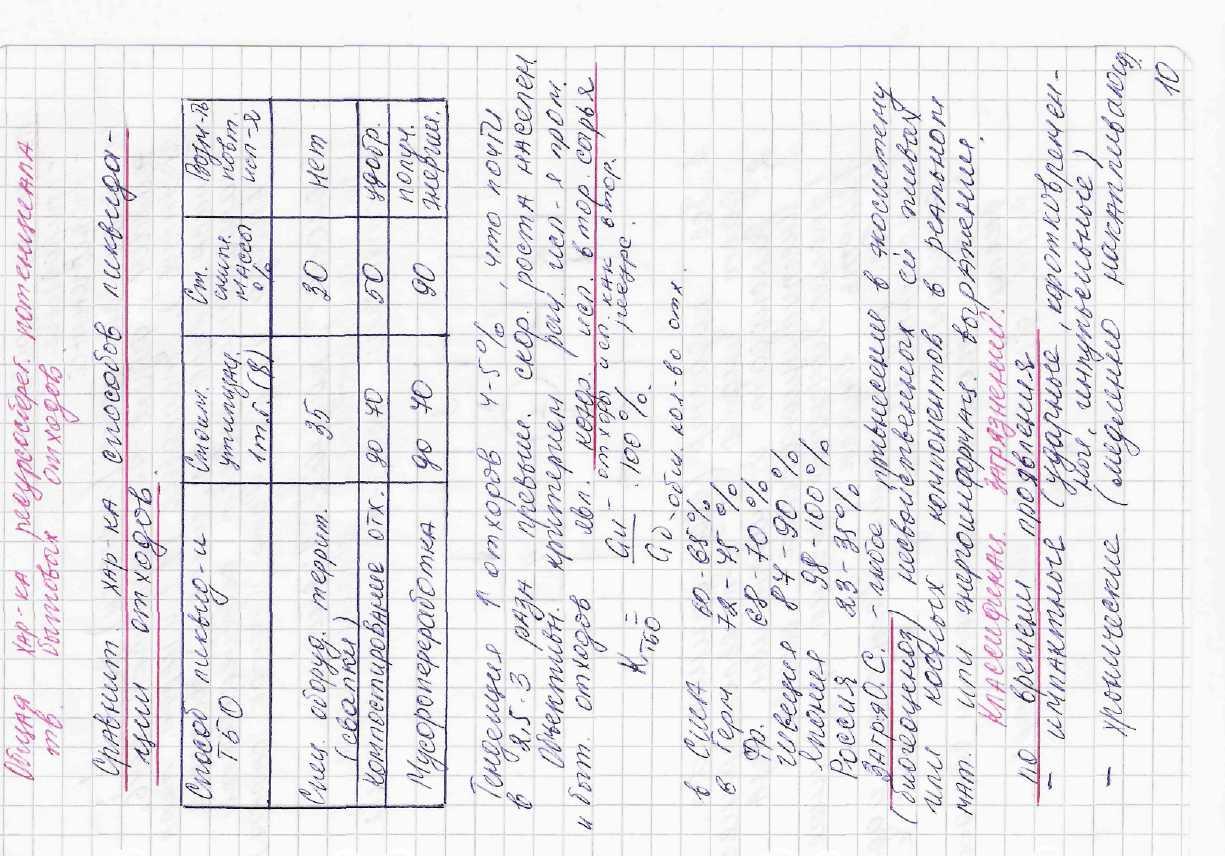 Общая хар-ка ресурсосберег. потенциала
тв. бытовых отходов
Сравнит. хар-ка способов ликвида-
ции отходов
Способ ликвид-и ТБО | Стоим. утилизац. 1 т. (\$) | Ст. сниж. массы % | Возм-ть повт. исп-я
Спец. оборуд. террит. (свалки) | 35 | 30 | нет
компостирование отх. | до 70 | 50 | удобр.
Мусоропереработка | до 70 | 90 | получ. энергии.
Тенденция ↑ отходов 4-5%, что почти
в 2,5-3 раза превыш. скор. роста населен.
Объективн. критерием рац. исп-я пром.
и быт. отходов явл. коэф. исп. втор. сырья
Kтбо = Gи - отходы исп. как втор. / G0 - общ. кол-во отх. · 100%
в США 60-65%
в Герм 72-75%
Фр. 68-70%
Швеция 87-90%
Япония 98-100%
Россия 23-35%
Загр.О.С - любое привнесение в экосистему
(биогеоценоз) несвойственных ей живых
или косных компонентов в реальном
мат. или энергоинформац. выражении.
Классификац. загрязнений:
по времени проявления
- импактные (ударные, кратковремен-
ные, импульсивные)
- хронические (медленно накапливающ.)
10